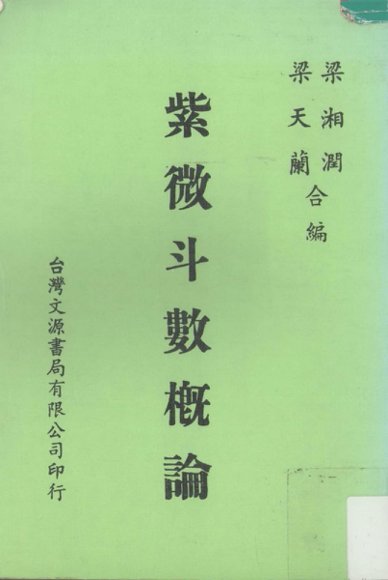 梁湘潤
梁天蘭
合編
紫微斗數概論
台灣文源書局有限公司印行